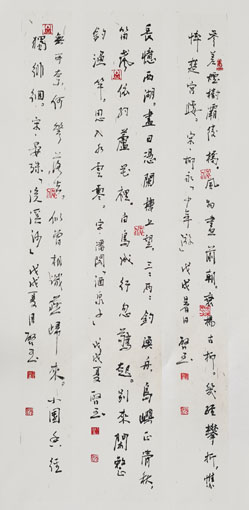 参差烟树灞陵桥。风物尽前朝。衰杨古柳,几经攀折,憔
悴楚宫腰。宋·柳永《少年游》戊戌春日
长忆西湖。尽日凭阑楼上望。三三两两钓渔舟。岛屿正清秋。
笛声依约芦花里。白鸟成行忽惊起。别来闲整
钓渔竿。思入水云寒。宋·潘阆《酒泉子》戊戌夏
无可奈何花落去,似曾相识燕归来。小园香径
独徘徊。宋·晏殊《浣溪沙》戊戌夏月